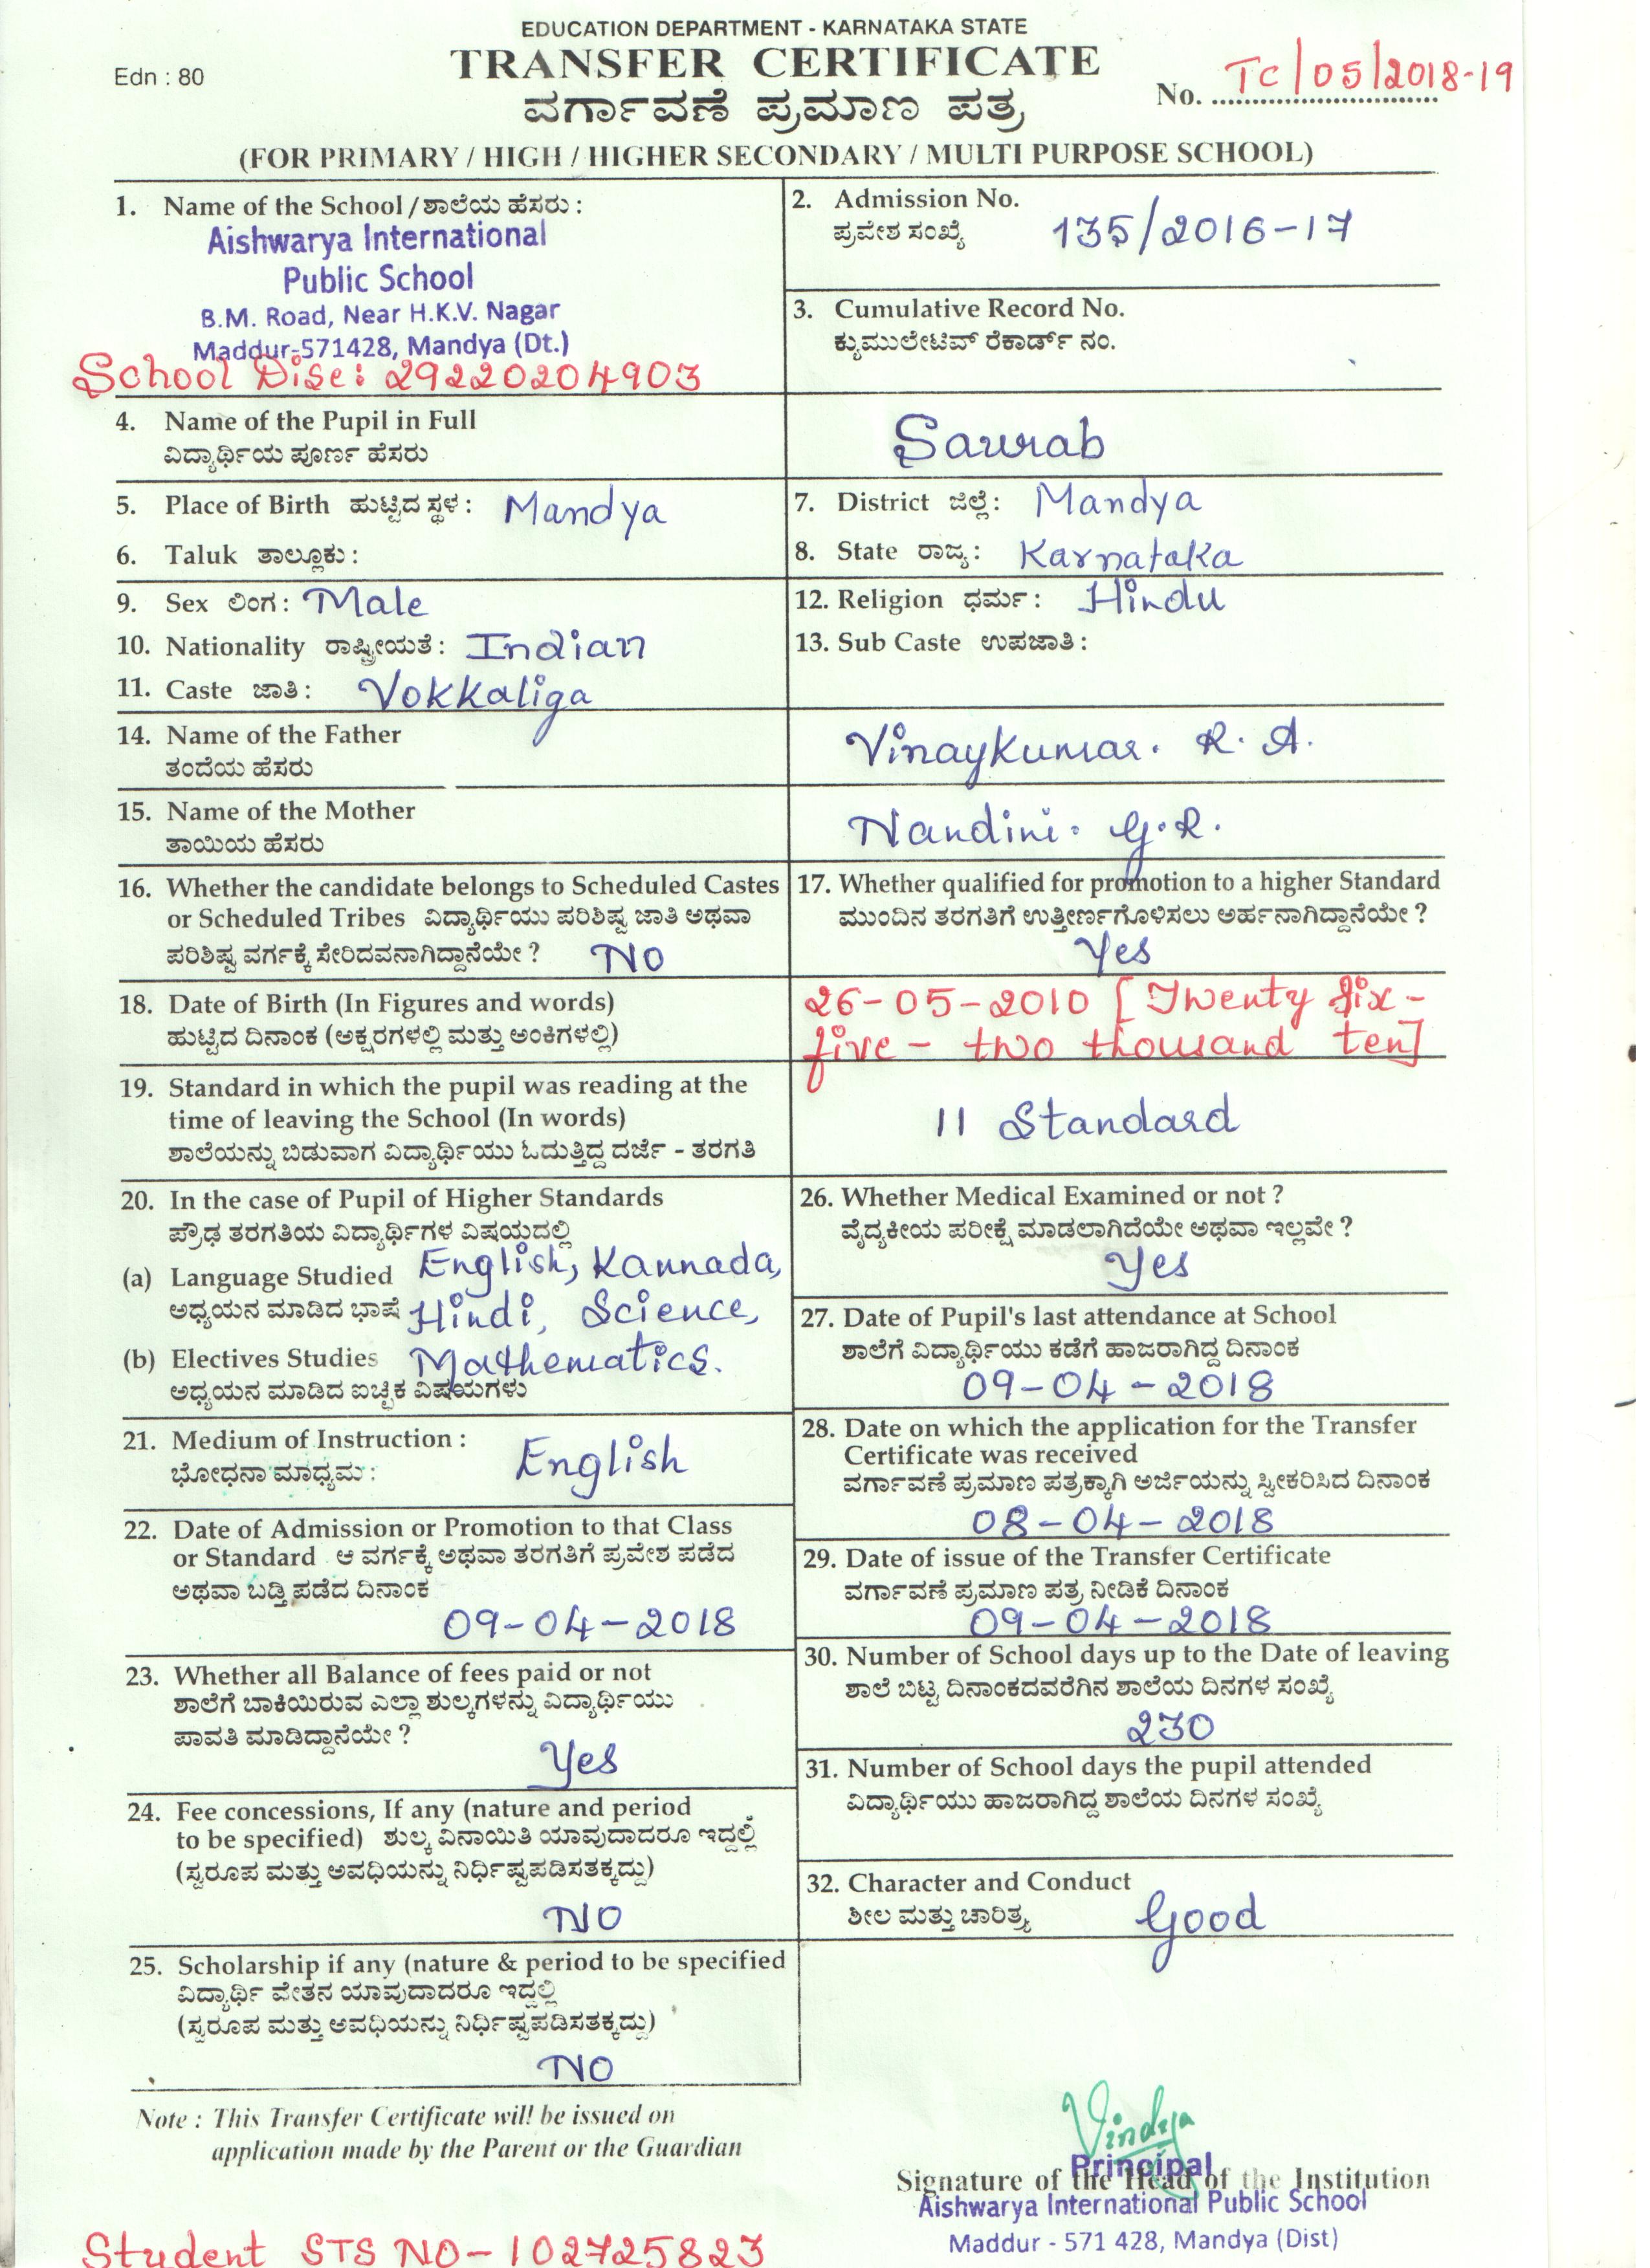 EDUCATION DEPARTMENT - KARNATAKA STATE
Edn : 80
TRANSFER CERTIFICATE
No. TC/05/2018-19
ವರ್ಗಾವಣೆ ಪ್ರಮಾಣ ಪತ್ರ
(FOR PRIMARY / HIGH / HIGHER SECONDARY / MULTI PURPOSE SCHOOL)
1. Name of the School / ಶಾಲೆಯ ಹೆಸರು :
Aishwarya International
Public School
B.M. Road, Near H.K.V. Nagar
Maddur-571428, Mandya (Dt.)
School Dise: 29220204903
2. Admission No.
ಪ್ರವೇಶ ಸಂಖ್ಯೆ 135/2016-17
3. Cumulative Record No.
ಕ್ಯುಮುಲೇಟಿವ್ ರೆಕಾರ್ಡ್ ನಂ.
4. Name of the Pupil in Full
ವಿದ್ಯಾರ್ಥಿಯ ಪೂರ್ಣ ಹೆಸರು
Saurab
5. Place of Birth ಹುಟ್ಟಿದ ಸ್ಥಳ : Mandya
6. Taluk ತಾಲ್ಲೂಕು :
7. District ಜಿಲ್ಲೆ : Mandya
8. State ರಾಜ್ಯ : Karnataka
9. Sex ಲಿಂಗ : Male
10. Nationality ರಾಷ್ಟ್ರೀಯತೆ : Indian
11. Caste ಜಾತಿ : Vokkaliga
12. Religion ಧರ್ಮ : Hindu
13. Sub Caste ಉಪಜಾತಿ :
14. Name of the Father
ತಂದೆಯ ಹೆಸರು
Vinaykumar. R. A.
15. Name of the Mother
ತಾಯಿಯ ಹೆಸರು
Nandini. G.R.
16. Whether the candidate belongs to Scheduled Castes
or Scheduled Tribes ವಿದ್ಯಾರ್ಥಿಯು ಪರಿಶಿಷ್ಟ ಜಾತಿ ಅಥವಾ
ಪರಿಶಿಷ್ಟ ವರ್ಗಕ್ಕೆ ಸೇರಿದವನಾಗಿದ್ದಾನೆಯೇ ? NO
17. Whether qualified for promotion to a higher Standard
ಮುಂದಿನ ತರಗತಿಗೆ ಉತ್ತೀರ್ಣಗೊಳಿಸಲು ಅರ್ಹನಾಗಿದ್ದಾನೆಯೇ ?
Yes
18. Date of Birth (In Figures and words)
ಹುಟ್ಟಿದ ದಿನಾಂಕ (ಅಕ್ಷರಗಳಲ್ಲಿ ಮತ್ತು ಅಂಕಿಗಳಲ್ಲಿ)
26-05-2010 [Twenty six -
five - two thousand ten]
19. Standard in which the pupil was reading at the
time of leaving the School (In words)
ಶಾಲೆಯನ್ನು ಬಿಡುವಾಗ ವಿದ್ಯಾರ್ಥಿಯು ಓದುತ್ತಿದ್ದ ದರ್ಜೆ - ತರಗತಿ
11 Standard
20. In the case of Pupil of Higher Standards
ಪ್ರೌಢ ತರಗತಿಯ ವಿದ್ಯಾರ್ಥಿಗಳ ವಿಷಯದಲ್ಲಿ
(a) Language Studied English, Kannada,
ಅಧ್ಯಯನ ಮಾಡಿದ ಭಾಷೆ Hindi, Science,
(b) Electives Studies Mathematics.
ಅಧ್ಯಯನ ಮಾಡಿದ ಐಚ್ಛಿಕ ವಿಷಯಗಳು
21. Medium of Instruction : English
ಭೋಧನಾ ಮಾಧ್ಯಮ :
22. Date of Admission or Promotion to that Class
or Standard ಆ ವರ್ಗಕ್ಕೆ ಅಥವಾ ತರಗತಿಗೆ ಪ್ರವೇಶ ಪಡೆದ
ಅಥವಾ ಬಡ್ತಿ ಪಡೆದ ದಿನಾಂಕ
09-04-2018
23. Whether all Balance of fees paid or not
ಶಾಲೆಗೆ ಬಾಕಿಯಿರುವ ಎಲ್ಲಾ ಶುಲ್ಕಗಳನ್ನು ವಿದ್ಯಾರ್ಥಿಯು
ಪಾವತಿ ಮಾಡಿದ್ದಾನೆಯೇ ?
Yes
24. Fee concessions, If any (nature and period
to be specified) ಶುಲ್ಕ ವಿನಾಯಿತಿ ಯಾವುದಾದರೂ ಇದ್ದಲ್ಲಿ
(ಸ್ವರೂಪ ಮತ್ತು ಅವಧಿಯನ್ನು ನಿರ್ಧಿಷ್ಟಪಡಿಸತಕ್ಕದ್ದು)
NO
25. Scholarship if any (nature & period to be specified
ವಿದ್ಯಾರ್ಥಿ ವೇತನ ಯಾವುದಾದರೂ ಇದ್ದಲ್ಲಿ
(ಸ್ವರೂಪ ಮತ್ತು ಅವಧಿಯನ್ನು ನಿರ್ಧಿಷ್ಟಪಡಿಸತಕ್ಕದ್ದು)
NO
26. Whether Medical Examined or not ?
ವೈದ್ಯಕೀಯ ಪರೀಕ್ಷೆ ಮಾಡಲಾಗಿದೆಯೇ ಅಥವಾ ಇಲ್ಲವೇ ?
Yes
27. Date of Pupil's last attendance at School
ಶಾಲೆಗೆ ವಿದ್ಯಾರ್ಥಿಯು ಕಡೆಗೆ ಹಾಜರಾಗಿದ್ದ ದಿನಾಂಕ
09-04-2018
28. Date on which the application for the Transfer
Certificate was received
ವರ್ಗಾವಣೆ ಪ್ರಮಾಣ ಪತ್ರಕ್ಕಾಗಿ ಅರ್ಜಿಯನ್ನು ಸ್ವೀಕರಿಸಿದ ದಿನಾಂಕ
08-04-2018
29. Date of issue of the Transfer Certificate
ವರ್ಗಾವಣೆ ಪ್ರಮಾಣ ಪತ್ರ ನೀಡಿಕೆ ದಿನಾಂಕ
09-04-2018
30. Number of School days up to the Date of leaving
ಶಾಲೆ ಬಿಟ್ಟ ದಿನಾಂಕದವರೆಗಿನ ಶಾಲೆಯ ದಿನಗಳ ಸಂಖ್ಯೆ
230
31. Number of School days the pupil attended
ವಿದ್ಯಾರ್ಥಿಯು ಹಾಜರಾಗಿದ್ದ ಶಾಲೆಯ ದಿನಗಳ ಸಂಖ್ಯೆ
32. Character and Conduct
ಶೀಲ ಮತ್ತು ಚಾರಿತ್ರ್ಯ Good
Note : This Transfer Certificate will be issued on
application made by the Parent or the Guardian
Vindya
Principal
Signature of the Head of the Institution
Aishwarya International Public School
Maddur - 571 428, Mandya (Dist)
Student STS NO-102725823